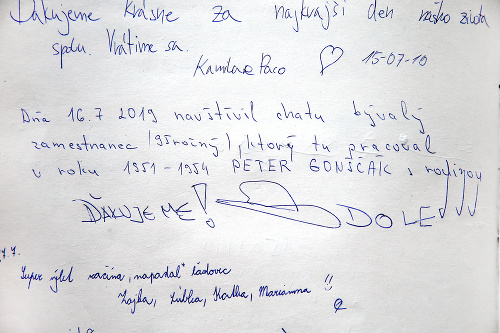 Ďakujeme krásne za najkrajší deň nášho života
spolu. Vrátime sa.
Kamila & Paco ♡ 15-07-10
Dňa 16.7 2019 navštívil chatu bývalý
zamestnanec (93ročný), ktorý tu pracoval
v roku 1951 - 1954 PETER GONŠČÁK s rodinou
ĎAKUJEME! DOLE
7.7.
Super výlet začína, napadal
Zojka, Ľublica, Katka, Marianna !!